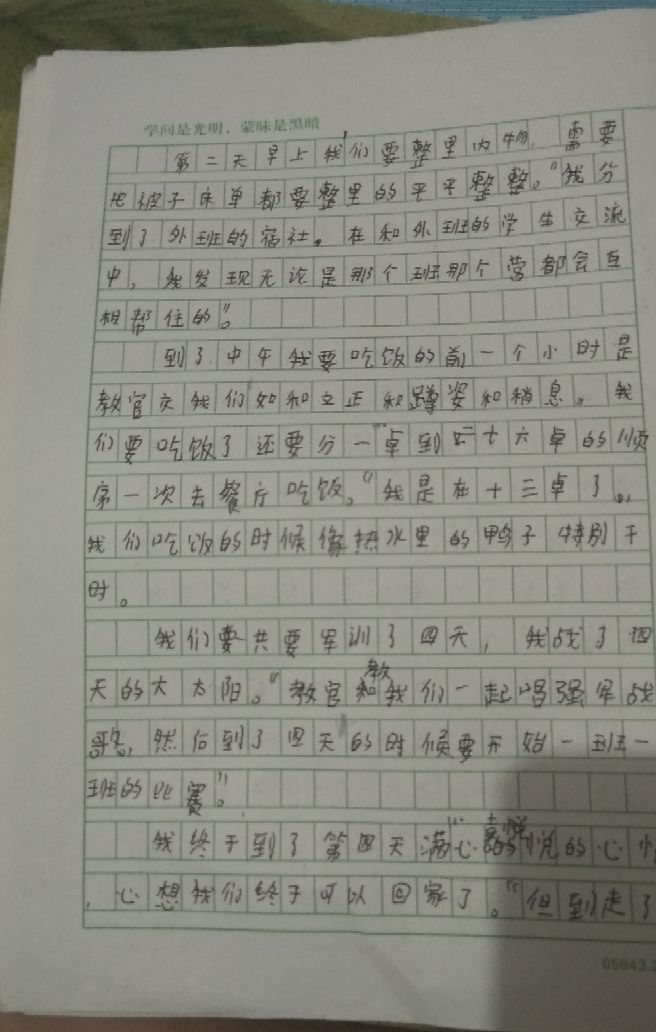 学问是光明，蒙昧是黑暗
第二天早上我们要整里内物，需要
把被子床单都要整里的平平整整。“我分
到了外班的宿社。在和外班的学生交流
中，我发现无论是那个班那个营都会互
相帮住的”。
到了中午我要吃饭的前一个小时是
教官交我们如和立正和蹲姿和稍息。我
们要吃饭了还要分一卓到四十六卓的顺
序一次去餐厅吃饭。“我是在十三卓了。
我们吃饭的时候像热水里的鸭子特别干
时。
我们要共要军训了四天，我战了四
天的大太阳。“教官和教我们一起唱强军战
歌，然后到了四天的时候要开始一班一
班的比赛”。
我终于到了第四天满心喜悦的心
，心想我们终于可以回家了。“但到走了
05643.2